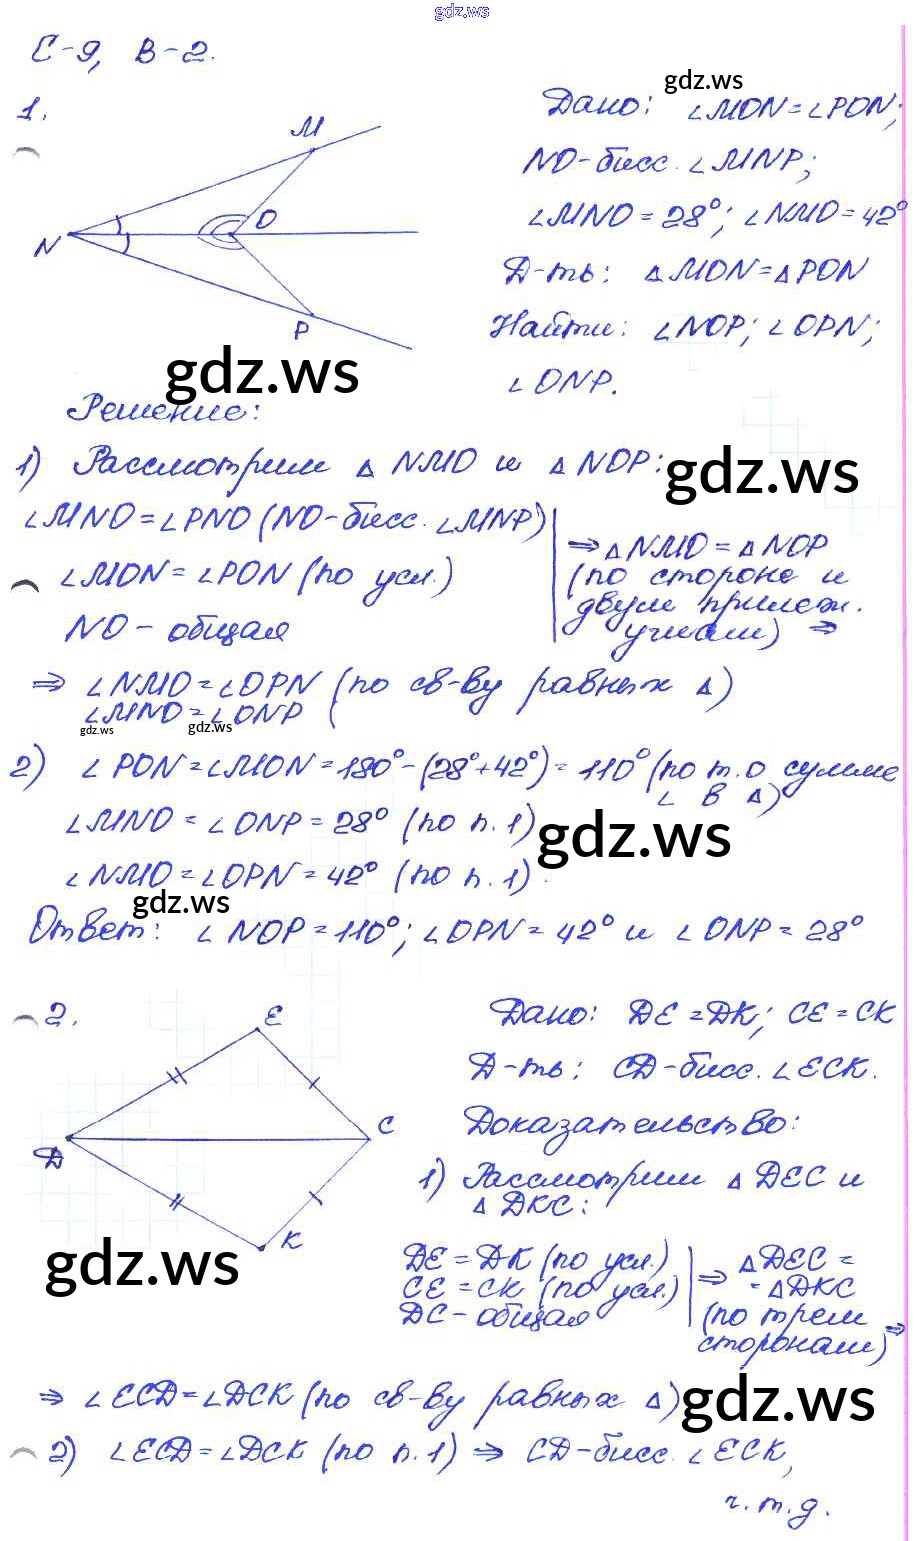 gdz.ws
С-9, В-2.
gdz.ws
1.
M
N
O
P
Дано: ∠MON = ∠PON;
NO-бисс. ∠MNP;
∠MNO = 28°; ∠NMO = 42°
Д-ть: △MON = △PON
Найти: ∠NOP; ∠OPN;
∠ONP.
gdz.ws
Решение:
1) Рассмотрим △NMO и △NOP:
gdz.ws
∠MNO = ∠PNO (NO-бисс. ∠MNP)
∠MON = ∠PON (по усл.)
NO - общая
⇒ △NMO = △NOP
(по стороне и
двум прилеж.
углам) ⇒
⇒ ∠NMO = ∠OPN (по св-ву равных △)
∠MNO = ∠ONP (
gdz.ws gdz.ws
2) ∠PON = ∠MON = 180° - (28° + 42°) = 110° (по т. о сумме
∠ в △)
∠MNO = ∠ONP = 28° (по п. 1)
gdz.ws
∠NMO = ∠OPN = 42° (по п. 1).
gdz.ws
Ответ: ∠NOP = 110°; ∠OPN = 42° и ∠ONP = 28°
2.
E
C
D
K
Дано: DE = DK; CE = CK
Д-ть: CD-бисс. ∠ECK.
Доказательство:
1) Рассмотрим △DEC и
△DKC:
gdz.ws
DE = DK (по усл.)
CE = CK (по усл.)
DC - общая
⇒ △DEC =
= △DKC
(по трем
сторонам) ⇒
⇒ ∠ECD = ∠DCK (по св-ву равных △)
gdz.ws
2) ∠ECD = ∠DCK (по п. 1) ⇒ CD-бисс. ∠ECK,
ч.т.д.